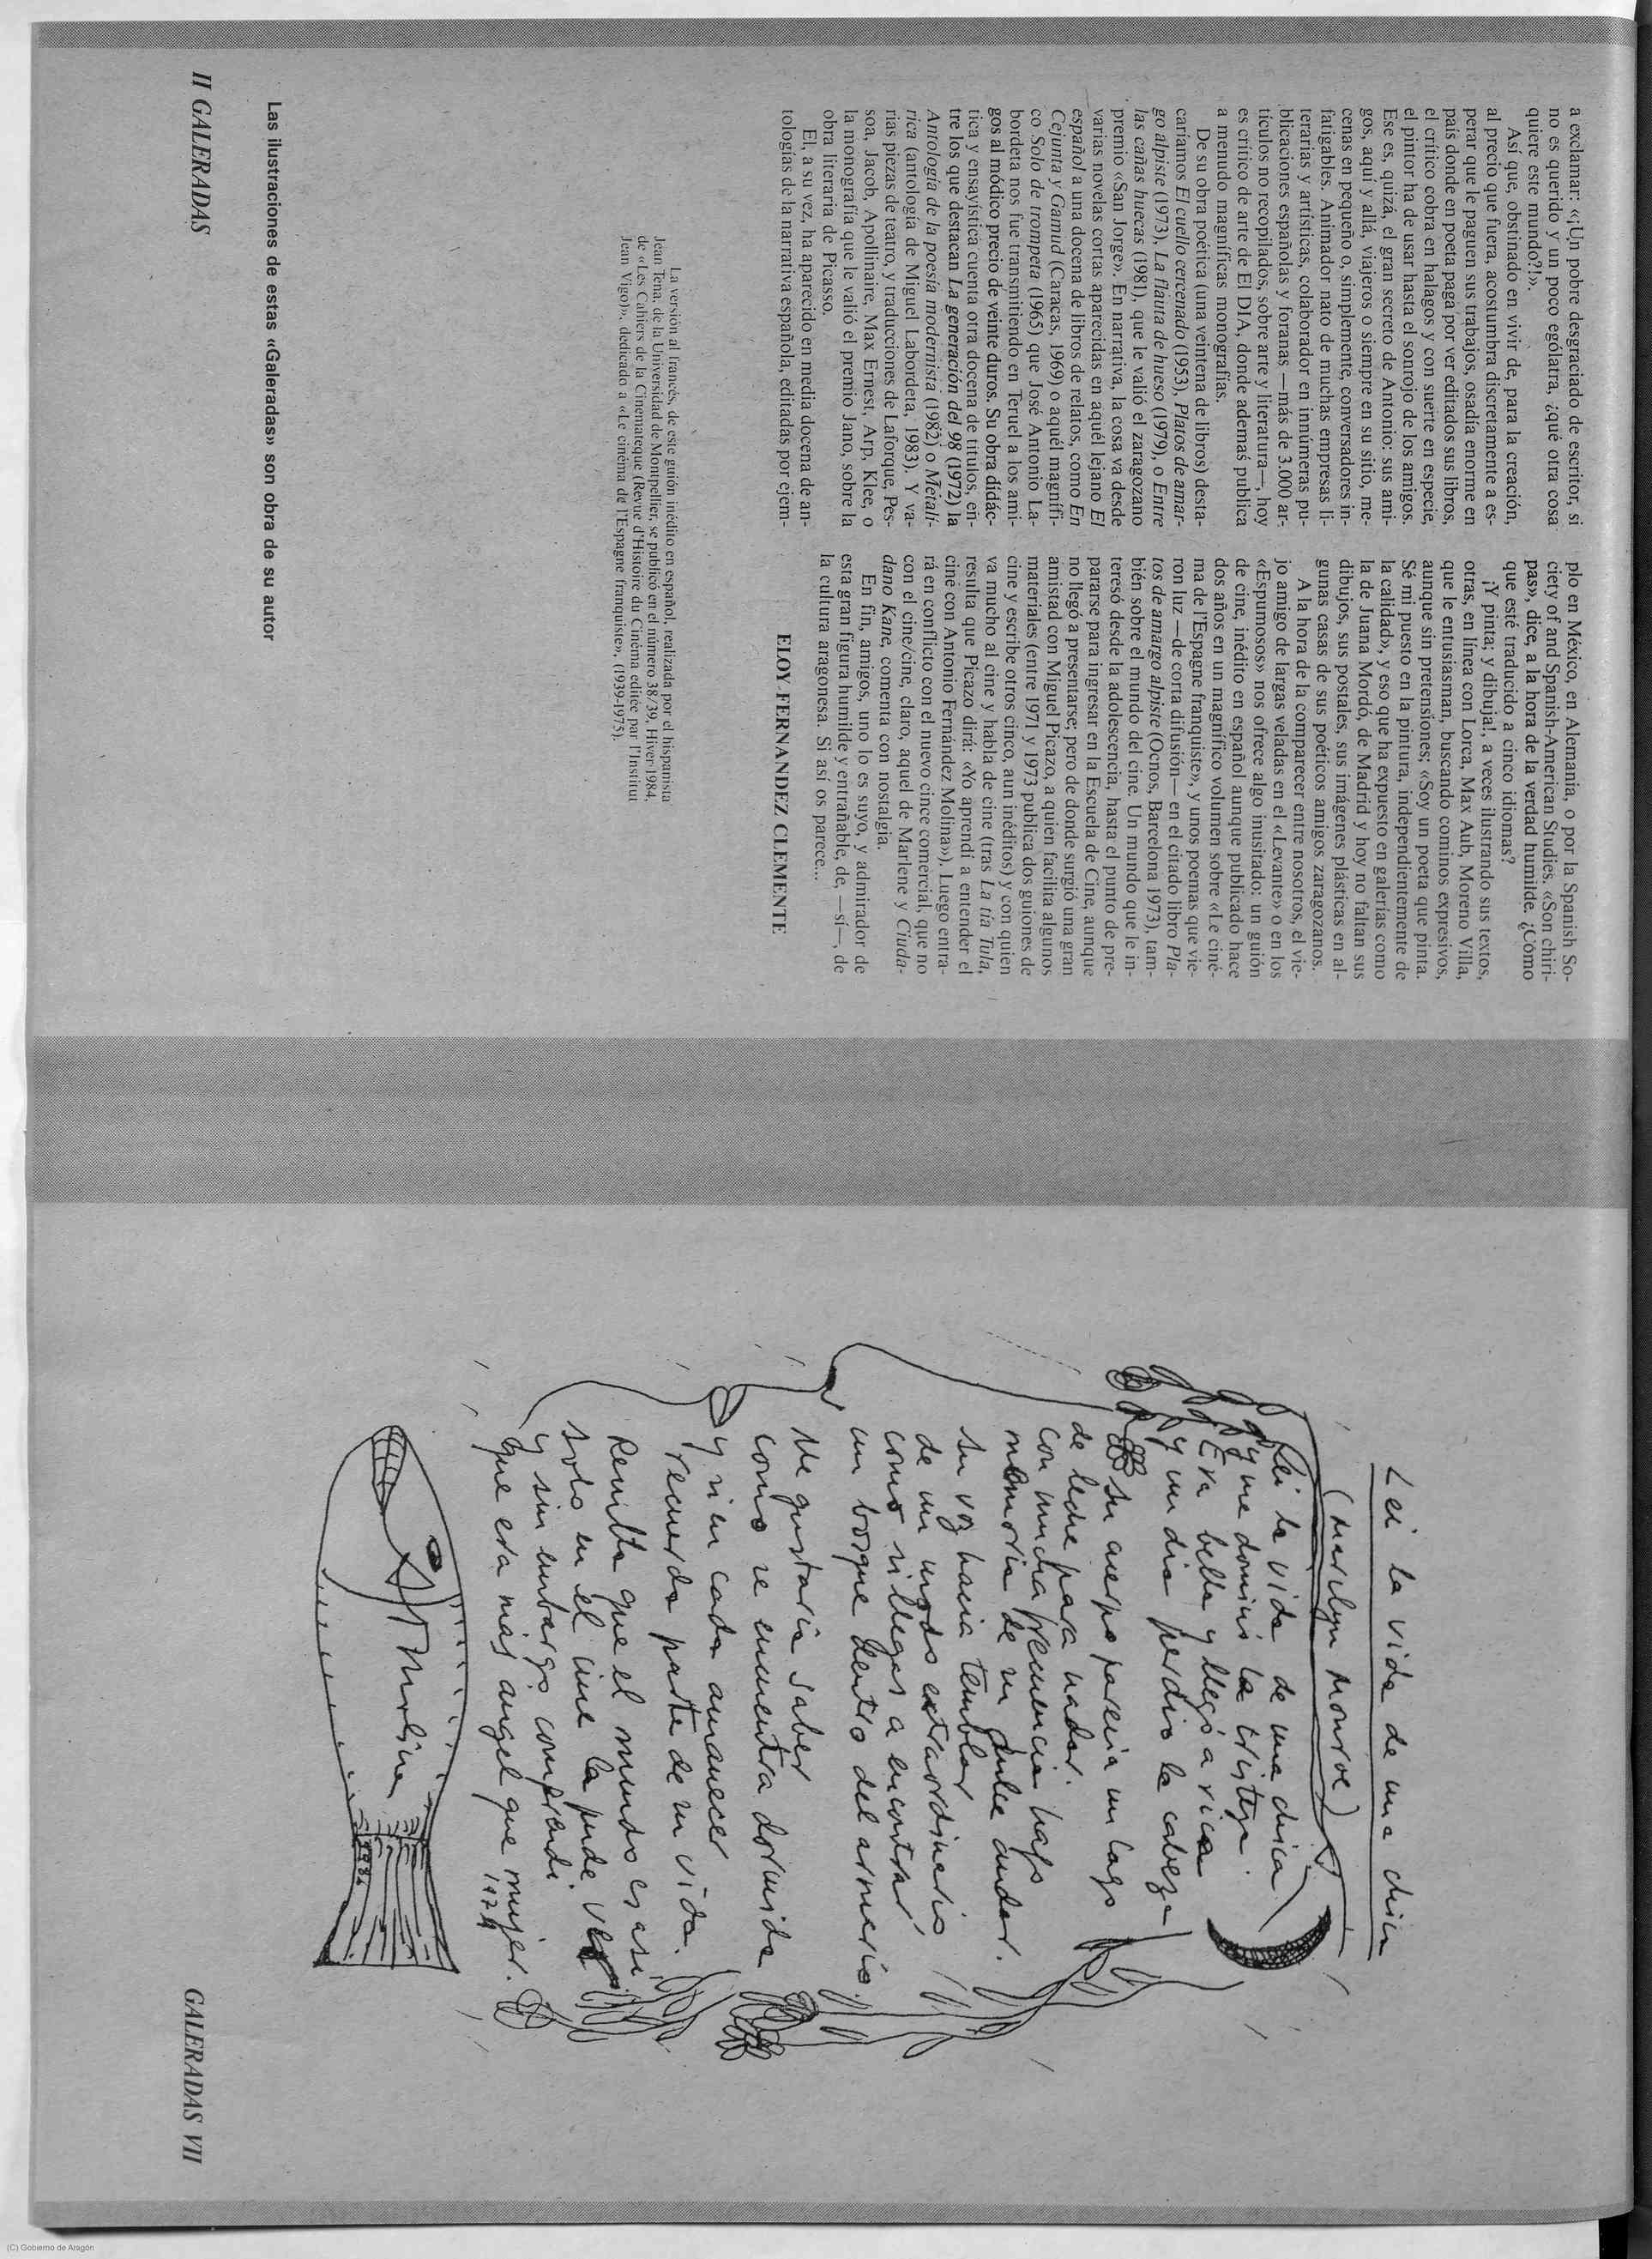 a exclamar: «¡Un pobre desgraciado de escritor, si
no es querido y un poco ególatra, ¿qué otra cosa
quiere este mundo?!».
Así que, obstinado en vivir de, para la creación,
al precio que fuera, acostumbra discretamente a es-
perar que le paguen sus trabajos, osadía enorme en
país donde en poeta paga por ver editados sus libros,
el crítico cobra en halagos y con suerte en especie,
el pintor ha de usar hasta el sonrojo de los amigos.
Ese es, quizá, el gran secreto de Antonio: sus ami-
gos, aquí y allá, viajeros o siempre en su sitio, me-
cenas en pequeño o, simplemente, conversadores in-
fatigables. Animador nato de muchas empresas li-
terarias y artísticas, colaborador en innúmeras pu-
blicaciones españolas y foranas —más de 3.000 ar-
tículos no recopilados, sobre arte y literatura—, hoy
es crítico de arte de El DIA, donde ademaś publica
a menudo magníficas monografías.
De su obra poética (una veintena de libros) desta-
caríamos El cuello cercenado (1953), Platos de amar-
go alpiste (1973), La flauta de hueso (1979), o Entre
las cañas huecas (1981), que le valió el zaragozano
premio «San Jorge». En narrativa, la cosa va desde
varias novelas cortas aparecidas en aquél lejano El
español a una docena de libros de relatos, como En
Cejunta y Gamud (Caracas, 1969) o aquél magnífi-
co Solo de trompeta (1965) que José Antonio La-
bordeta nos fue transmitiendo en Teruel a los ami-
gos al módico precio de veinte duros. Su obra didác-
tica y ensayística cuenta otra docena de títulos, en-
tre los que destacan La generación del 98 (1972) la
Antología de la poesía modernista (1982) o Metali-
rica (antología de Miguel Labordeta, 1983). Y va-
rias piezas de teatro, y traducciones de Laforque, Pes-
soa, Jacob, Apollinaire, Max Ernest, Arp, Klee, o
la monografía que le valió el premio Jano, sobre la
obra literaria de Picasso.
El, a su vez, ha aparecido en media docena de an-
tologías de la narrativa española, editadas por ejem-
plo en México, en Alemania, o por la Spanish So-
ciety of and Spanish-American Studies. «Son chiri-
pas», dice, a la hora de la verdad humilde. ¿Cómo
que esté traducido a cinco idiomas?
¡Y pinta; y dibuja!, a veces ilustrando sus textos,
otras, en línea con Lorca, Max Aub, Moreno Villa,
que le entusiasman, buscando cominos expresivos,
aunque sin pretensiones; «Soy un poeta que pinta.
Sé mi puesto en la pintura, independientemente de
la calidad», y eso que ha expuesto en galerías como
la de Juana Mordó, de Madrid y hoy no faltan sus
dibujos, sus postales, sus imágenes plásticas en al-
gunas casas de sus poéticos amigos zaragozanos.
A la hora de la comparecer entre nosotros, el vie-
jo amigo de largas veladas en el «Levante» o en los
«Espumosos» nos ofrece algo inusitado: un guión
de cine, inédito en español aunque publicado hace
dos años en un magnífico volumen sobre «Le ciné-
ma de l'Espagne franquiste», y unos poemas que vie-
ron luz —de corta difusión— en el citado libro Pla-
tos de amargo alpiste (Ocnos, Barcelona 1973), tam-
bién sobre el mundo del cine. Un mundo que le in-
teresó desde la adolescencia, hasta el punto de pre-
pararse para ingresar en la Escuela de Cine, aunque
no llegó a presentarse; pero de donde surgió una gran
amistad con Miguel Picazo, a quien facilita algunos
materiales (entre 1971 y 1973 publica dos guiones de
cine y escribe otros cinco, aun inéditos) y con quien
va mucho al cine y habla de cine (tras La tía Tula,
resulta que Picazo dirá: «Yo aprendí a entender el
ciné con Antonio Fernández Molina»). Luego entra-
rá en conflicto con el nuevo cince comercial, que no
con el cine/cine, claro, aquel de Marlene y Ciuda-
dano Kane, comenta con nostalgia.
En fin, amigos, uno lo es suyo, y admirador de
esta gran figura humilde y entrañable, de, —sí—, de
la cultura aragonesa. Si así os parece...
ELOY FERNANDEZ CLEMENTE
La versión al francés, de este guión inédito en español, realizada por el hispanista
Jean Tena, de la Universidad de Montpellier, se publicó en el número 38/39, Hiver 1984,
de «Les Cahiers de la Cinematèque (Revue d'Histoire du Cinèma editée par l'Institut
Jean Vigo)», dedicado a «Le cinéma de l'Espagne franquiste», (1939-1975).
Las ilustraciones de estas «Galeradas» son obra de su autor
II GALERADAS
Leí la vida de una chica
(Marilyn Monroe)
Leí la vida de una chica
y me dominó la tristeza.
Era bella y llegó a rica
y un día perdió la cabeza
Su cuerpo parecía un lago
de leche para nadar.
Con mucha frecuencia hago
memoria de su dulce andar.
Su voz hacía temblar
de un modo extraordinario
como si llegas a encontrar
un bosque dentro del armario.
Me gustaría saber
como se encuentra dormida
y si en cada amanecer
recuerda parte de su vida.
Resulta que el mundo es así
solo en el cine la pude ver
y sin embargo comprendí
que era más angel que mujer.
1974
A F Molina
1986
GALERADAS VII
(C) Gobierno de Aragón